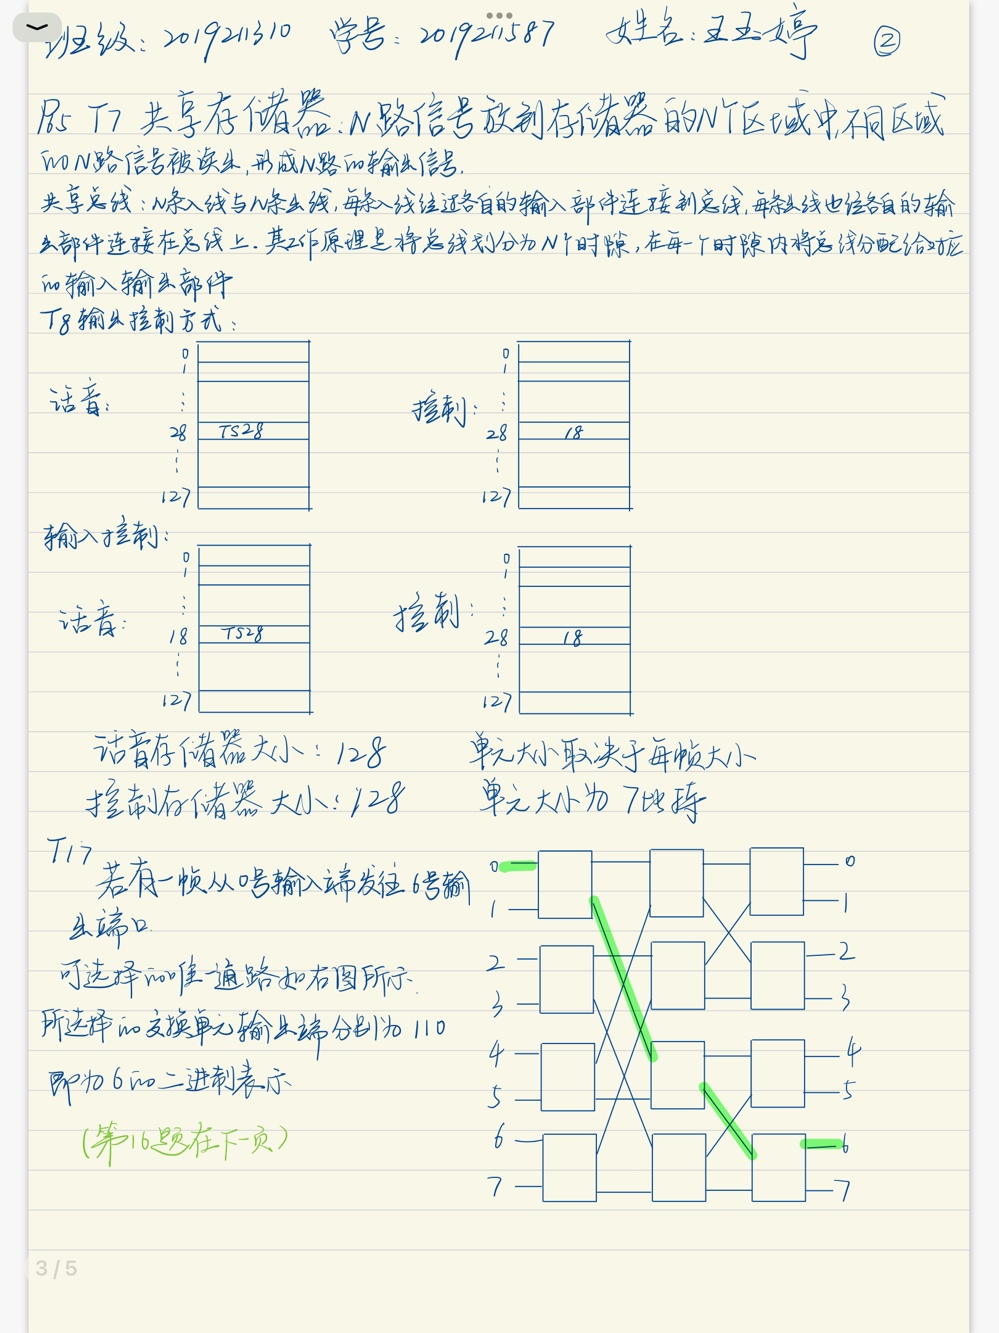 班级：2019211310 学号：2019211587 姓名：王玉婷 ②
P85 T7 共享存储器：N路信号放到存储器的N个区域中,不同区域
的N路信号被读出,形成N路的输出信号.
共享总线：N条入线与N条出线,每条入线经过各自的输入部件连接到总线,每条出线也经各自的输
出部件连接在总线上.其工作原理是将总线划分为N个时隙,在每一个时隙内将总线分配给对应
的输入输出部件
T8 输出控制方式：
话音：
0
1
⋮
28 TS28
⋮
127
控制：
0
1
⋮
28 18
⋮
127
输入控制：
话音：
0
1
⋮
18 TS28
⋮
127
控制：
0
1
⋮
28 18
⋮
127
话音存储器大小：128 单元大小取决于每帧大小
控制存储器大小：128 单元大小为7比特
T17
若有一帧从0号输入端发往6号输
出端口.
可选择的唯一通路如右图所示.
所选择的交换单元输出端分别为110
即为6的二进制表示
(第16题在下一页)
0 0
1 1
2 2
3 3
4 4
5 5
6 6
7 7
3 / 5